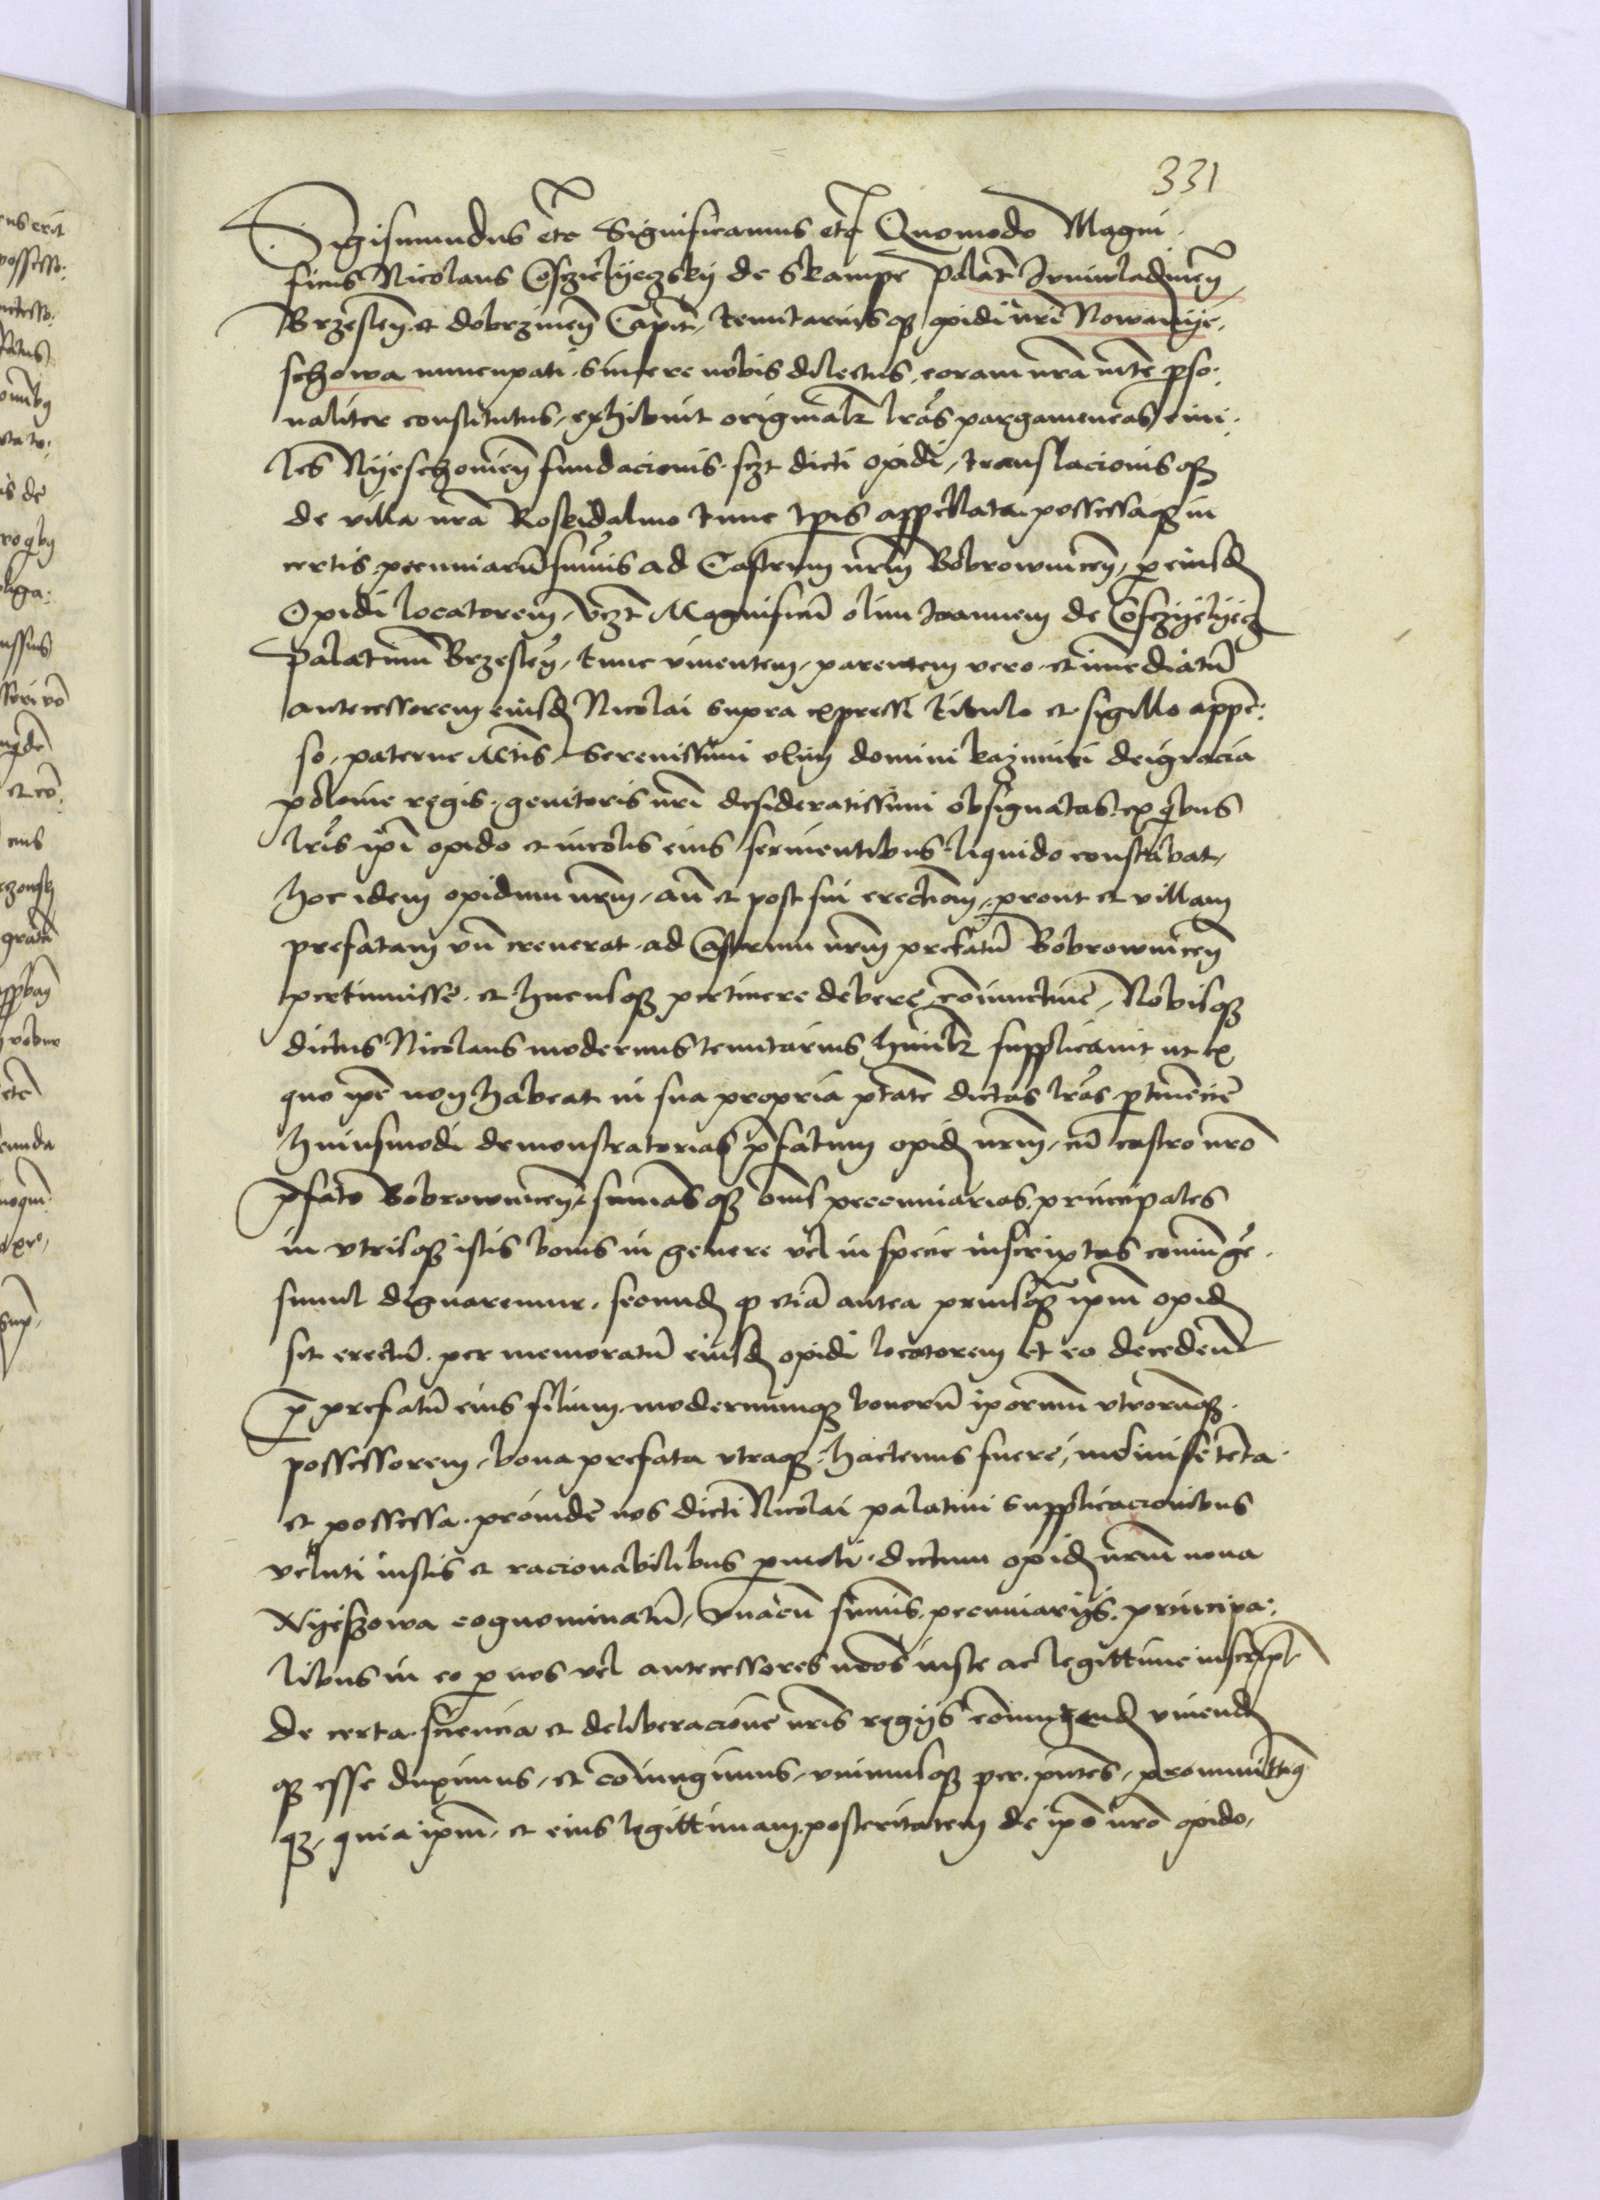 331
Sigismundus etc Significamus etc Quomodo Magni
ficus Nicolaus Cosczielyeczsky de Skampe palatꝰ Juniuladinen̄
Brzesten̄ et dobrzinen̄ Capit̄, tenutariusqꝫ opidi nr̄i Nowanye,
schowa nuncupati sincere nobis dilectus, coram nr̄a mte ꝑso:
naliter constitutus, exhibuit originalꝫ lr̄as pargameneas
les Nyeschouien̄ fundacionis sꝫt dicti opidi, translacionisqꝫ
de villa nr̄a Rosidalmo tunc tꝑis appellata possessaqꝫ in
certis pecuniarū sum̄is ad Castrum nr̄m Bobrownicen̄, ꝑ eiusd
Opidi locatorem, vꝫt Magnificū olim Joannem de Cosczyelyecz
palatinum Brzesten̄, tunc viuentem, parentem vero et immediatū
antecessorem eiusd Nicolai supra expressi titulo et sigillo appen̄:
so, paterne Mtis, Serenissimi olim domini kazimiri dei gracia
polonie regis, genitoris nr̄i desideratissimi obsignatas, ex qbus
lr̄is ip̄i opido et incolis eius seruientibus liquido constabat,
hoc idem opidum nr̄m, an̄ et post sui erection̄em, prout et villam
prefatam vn̄ creuerat ad Castrum nr̄m prefatū Bobrownicen̄
pertinuisse et hucusqꝫ pertinere debere coniunctim̄, Nobisqꝫ
dictus Nicolaus modernus tenutarius humilꝫ supplicauit ut ex
quo ip̄e non habeat in sua propria ptate dictas lr̄as ꝑtinencie
huiusmodi demonstratorias p̄fatum opid nr̄m, cū castro nr̄o
p̄fato Bobrownicen̄, sum̄asqꝫ om̄s pecuniarias principales
in vtrisqꝫ istis bonis in genere vel in specie inscriptas coniunge
simul dignaremur, secund ꝙ etiā antea priusqꝫ ip̄m opid
sit erectū, per memoratū eiusd opidi locatorem et eo deceden̄
ꝑ prefatū eius filium modernumqꝫ bonorū ip̄orum vtrorūqꝫ
possessorem, bona prefata vtraqꝫ hactenus fuere, indiuise ten̄ta
et possessa, proinde nos dicti Nicolai palatini supplicacionibus
veluti iustis et racionabilibus ꝑmoti, dictum opid nr̄m noua
Nyeszowa cognominatū, vnacū sum̄is pecuniarijs principa:
libus in eo ꝑ nos vel antecessores nr̄os iuste ac legittime inscript̄
De certa sciencia et deliberacione nr̄is regijs coniungend vniend
qꝫ esse duximus, et coniungimus, vnimusqꝫ per pn̄tes, promittimꝰ
qꝫ, quia ip̄m, et eius legittimam posteritatem de ip̄o nr̄o opido,